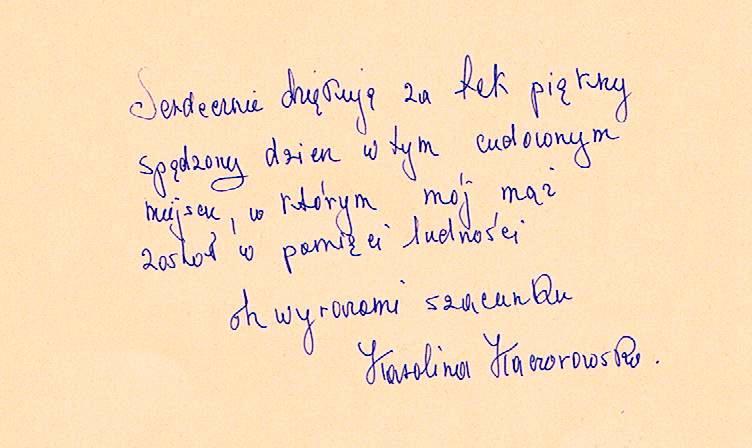 Serdecznie dziękuję za tak piękny
spędzony dzien w tym cudownym
miejscu, w którym mój mąż
został w pamięci ludności
z wyrazami szacunku
Karolina Kaczorowska.